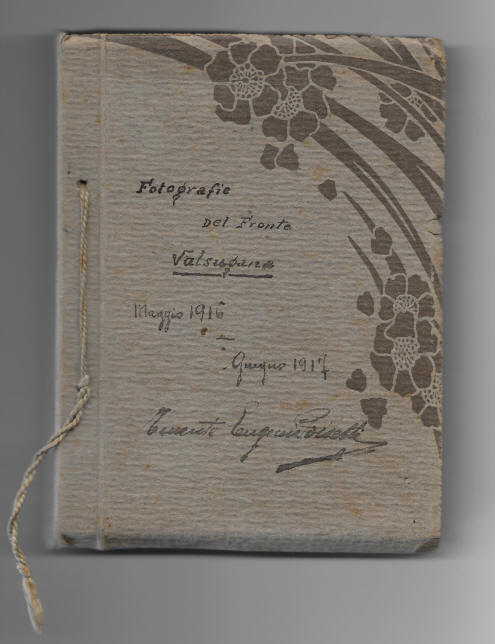 Fotografie
Del Fronte
Valsugana
Maggio 1916
-
Giugno 1917
Tenente Eugenio